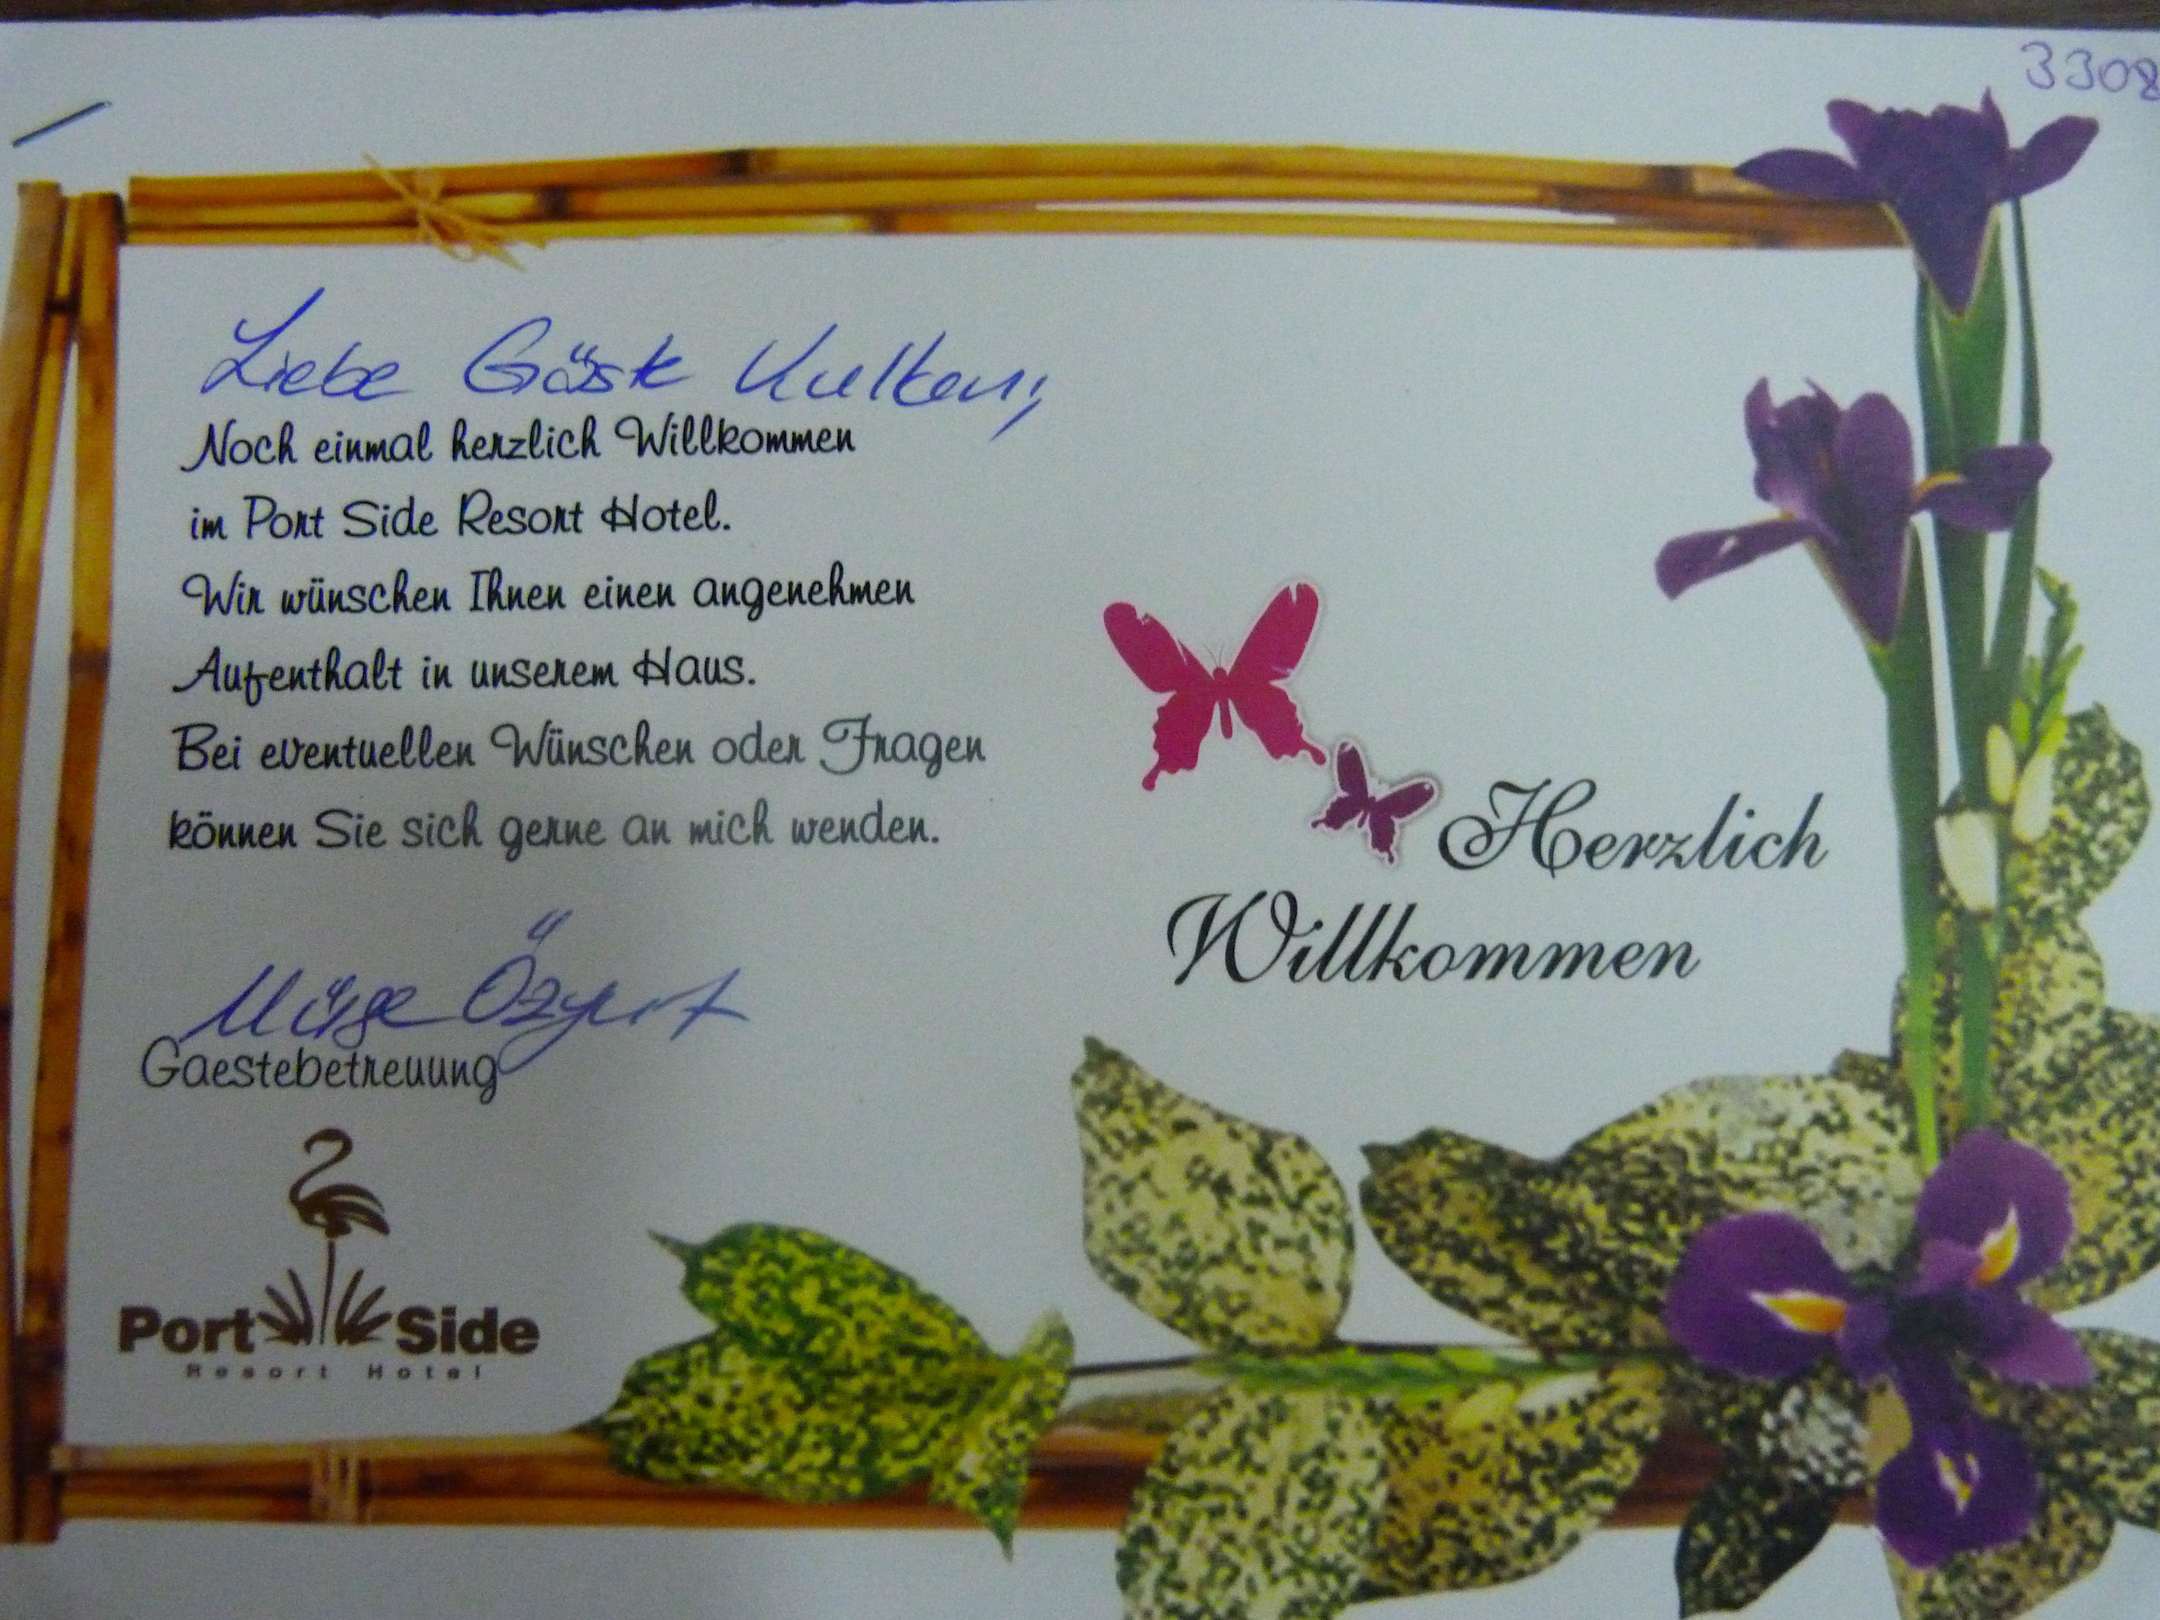 3308
Liebe Gäste
Noch einmal herzlich Willkommen
im Port Side Resort Hotel.
Wir wünschen Ihnen einen angenehmen
Aufenthalt in unserem Haus.
Bei eventuellen Wünschen oder Fragen
können Sie sich gerne an mich wenden.
Herzlich
Willkommen
Müge Özyurt
Gaestebetreuung
Port Side
Resort Hotel